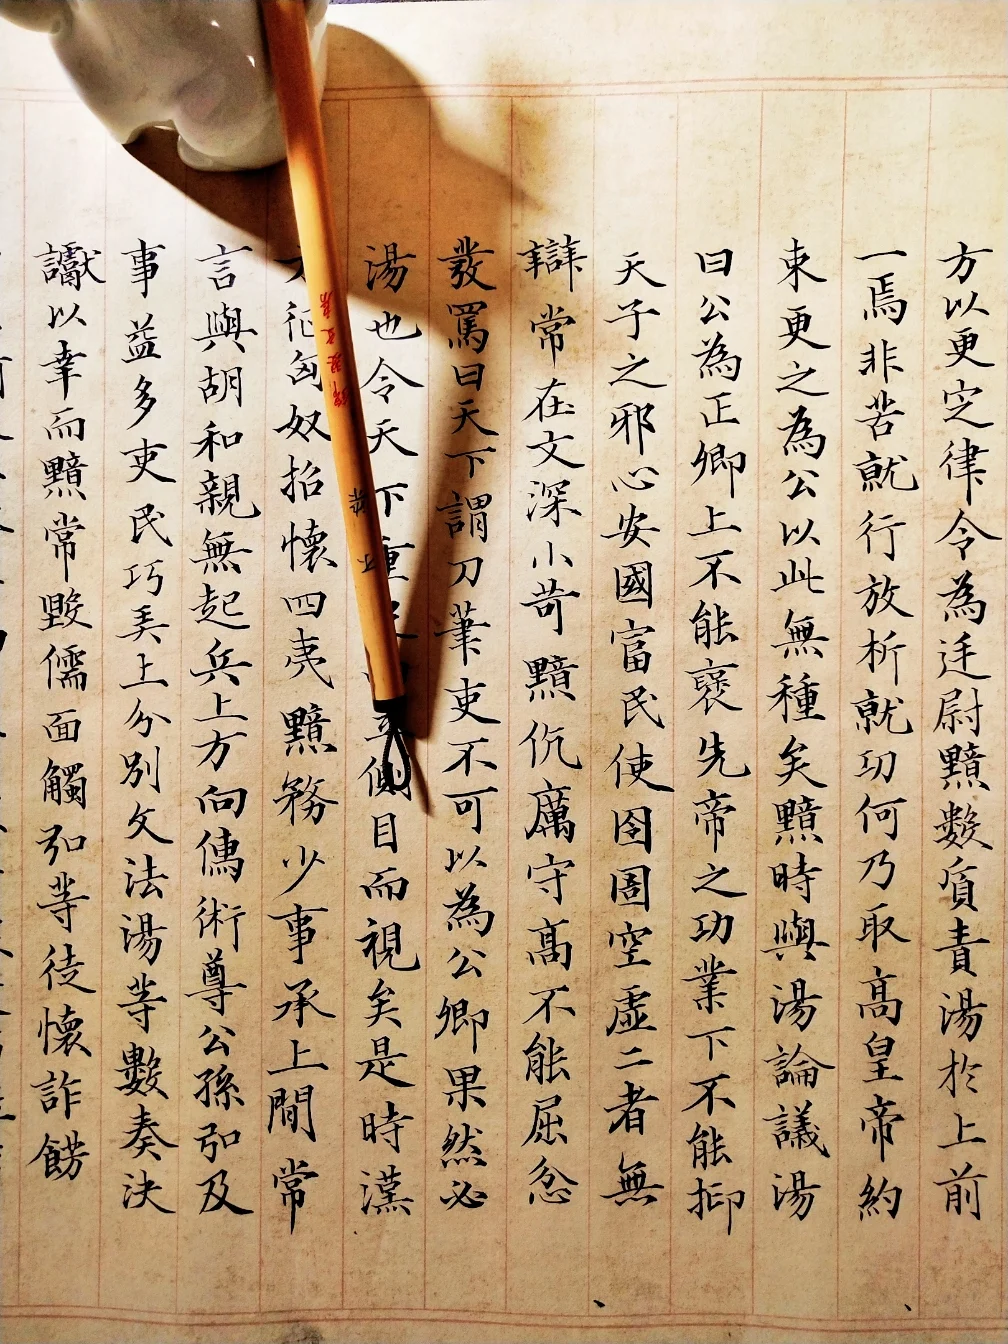 方以更定律令為廷尉黯數質責湯於上前
一焉非苦就行放析就功何乃取高皇帝約
束更之為公以此無種矣黯時與湯論議湯
曰公為正卿上不能褒先帝之功業下不能抑
天子之邪心安國富民使囹圄空虛二者無
辯常在文深小苛黯伉厲守高不能屈忿
發罵曰天下謂刀筆吏不可以為公卿果然必
湯也令天下重側目而視矣是時漢
征匈奴招懷四夷黯務少事承上間常
言與胡和親無起兵上方向儒術尊公孫弘及
事益多吏民巧弄上分別文法湯等數奏決
讞以幸而黯常毀儒面觸弘等徒懷詐飾